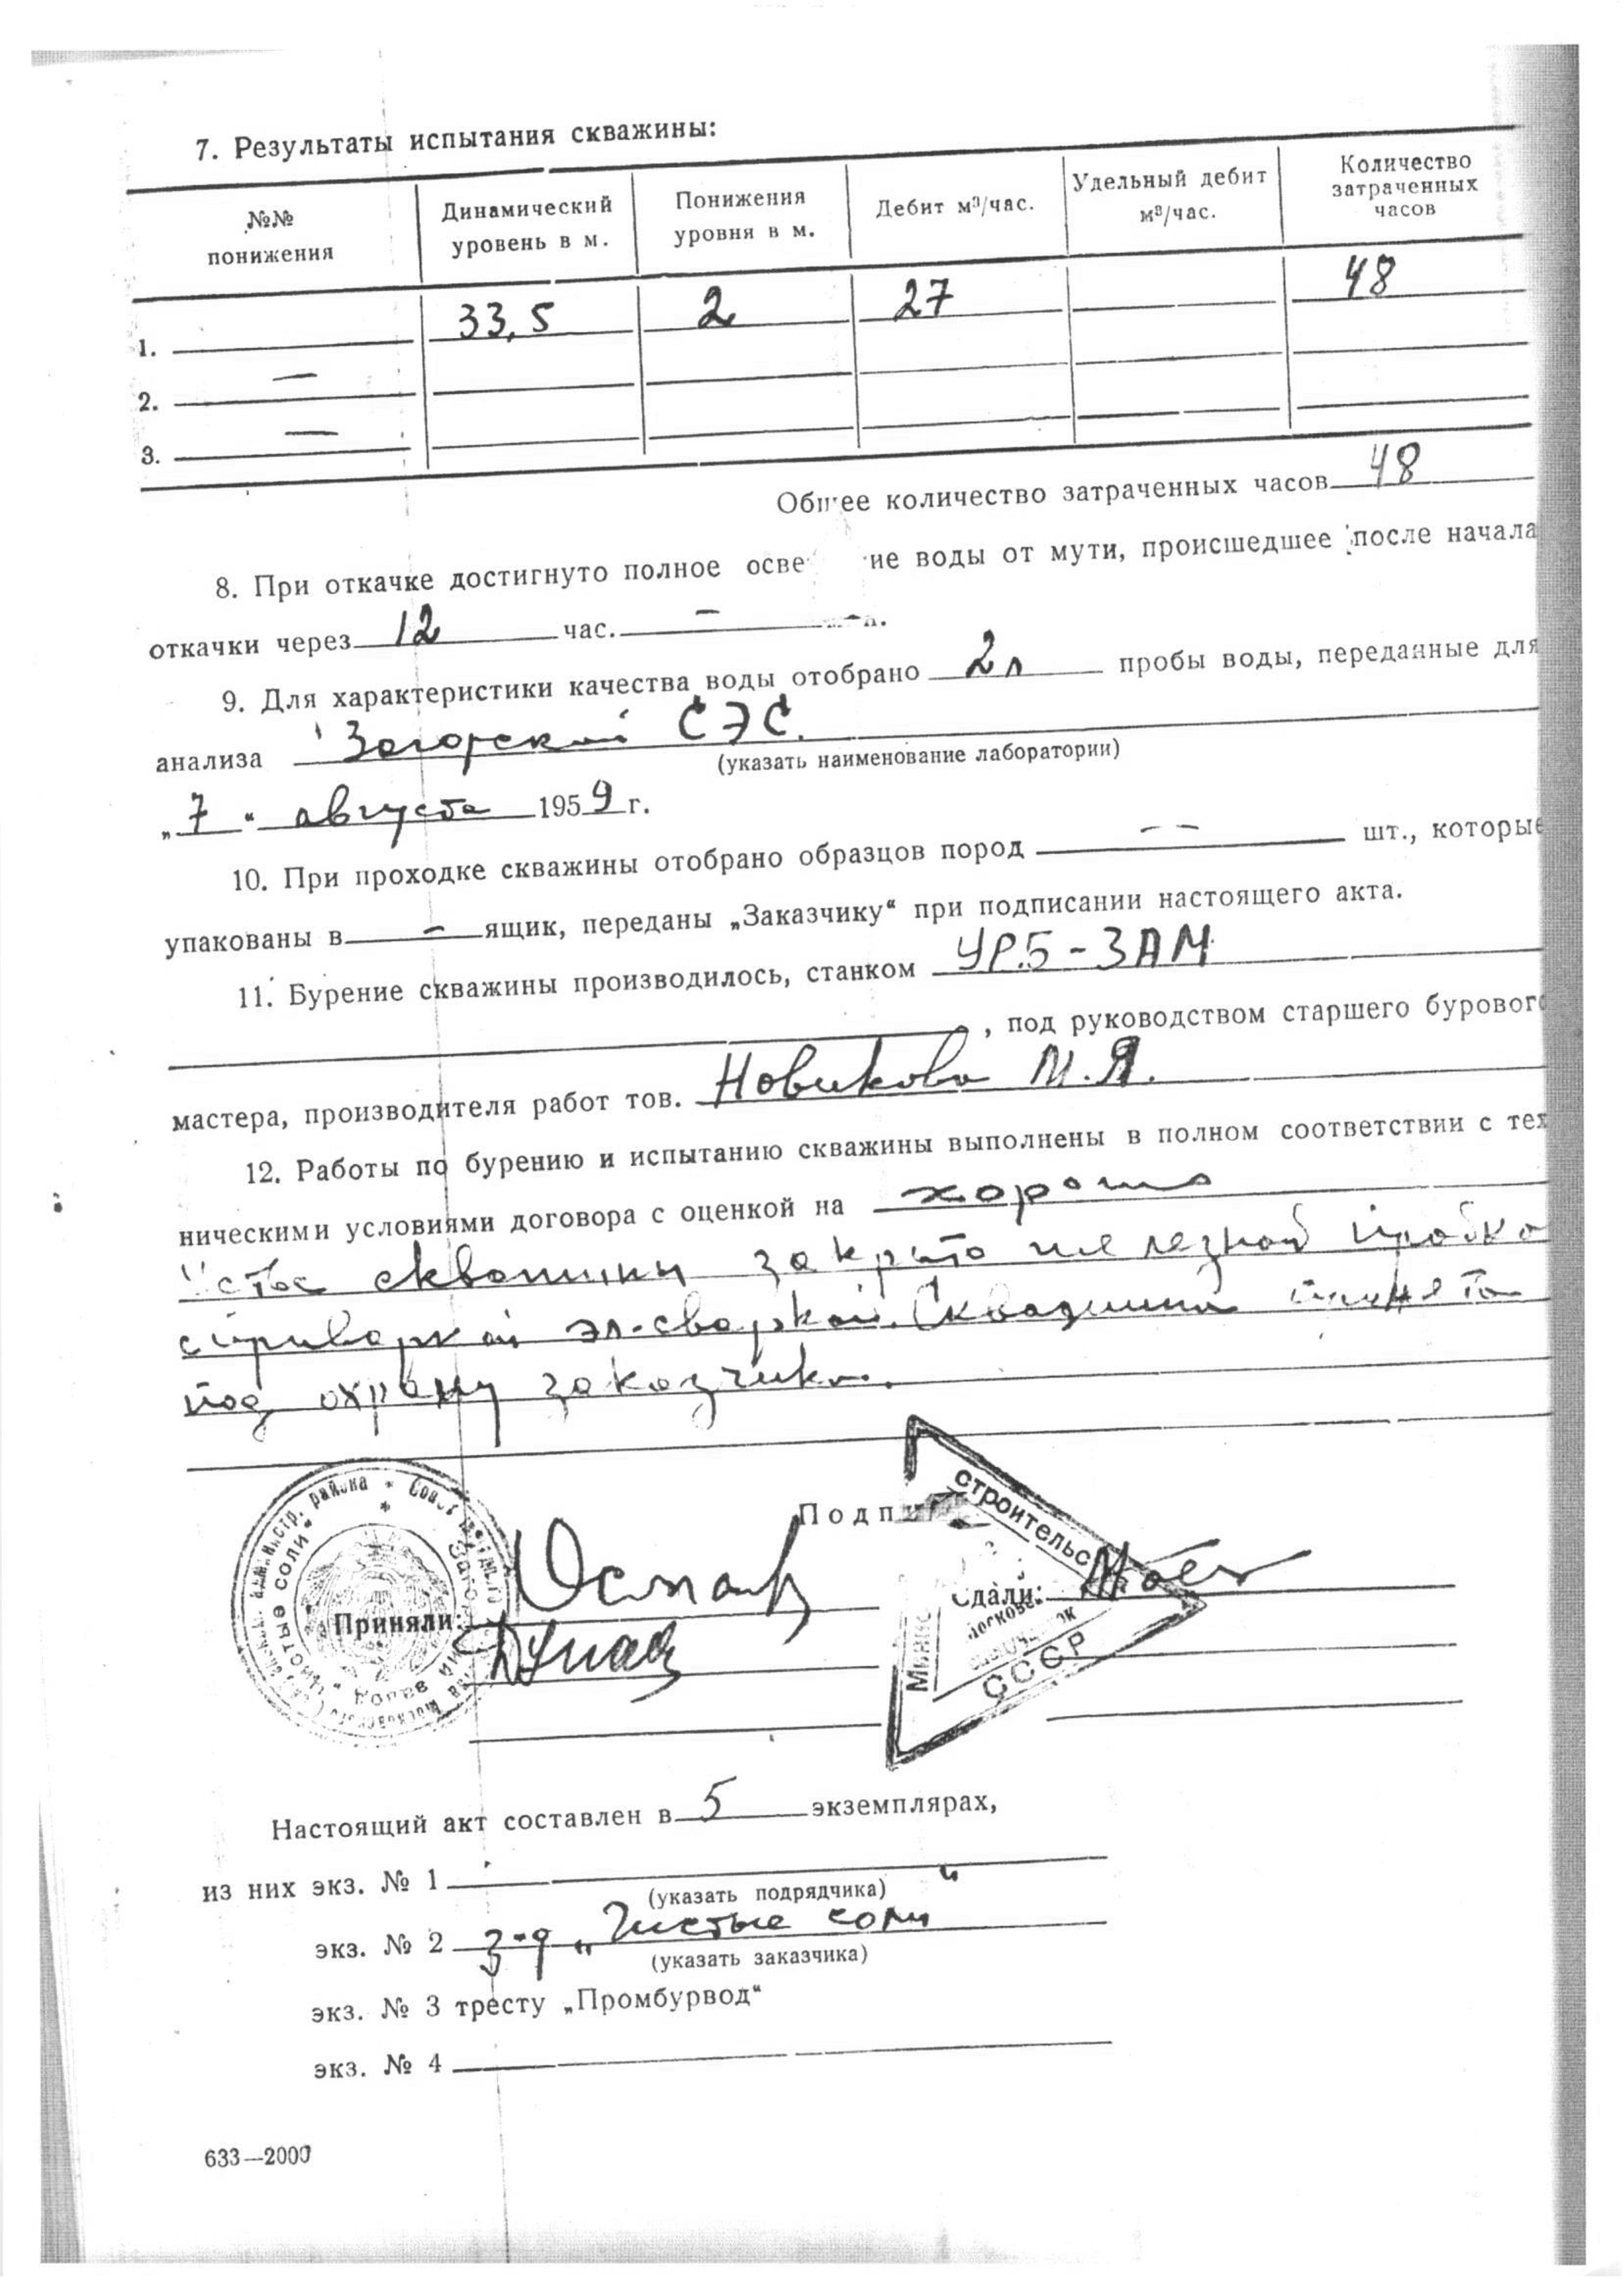 7. Результаты испытания скважины:
№№ понижения | Динамический уровень в м. | Понижения уровня в м. | Дебит м³/час. | Удельный дебит м³/час. | Количество затраченных часов
1. 33,5 2 27 48
2. —
3. —
Общее количество затраченных часов 48
8. При откачке достигнуто полное осве ие воды от мути, происшедшее после начала
откачки через 12 час. —
9. Для характеристики качества воды отобрано 2 л пробы воды, переданные для
анализа Загорской СЭС.
(указать наименование лаборатории)
„7“ августа 1959 г.
10. При проходке скважины отобрано образцов пород — — шт., которые
упакованы в — ящик, переданы „Заказчику“ при подписании настоящего акта.
11. Бурение скважины производилось, станком УРБ-3АМ
, под руководством старшего бурового
мастера, производителя работ тов. Новикова М.Я.
12. Работы по бурению и испытанию скважины выполнены в полном соответствии с тех
ническими условиями договора с оценкой на хорошо
Устье скважины закрыто железной пробко
с приваркой эл-сваркой. Скважина принята
под охрану заказчика.
Подпи
строительс
Приняли:
Сдали:
Чистые соли
завод
района
СССР
Настоящий акт составлен в 5 экземплярах,
из них экз. № 1
(указать подрядчика)
экз. № 2 з-д „Чистые соли“
(указать заказчика)
экз. № 3 тресту „Промбурвод“
экз. № 4
633—2000